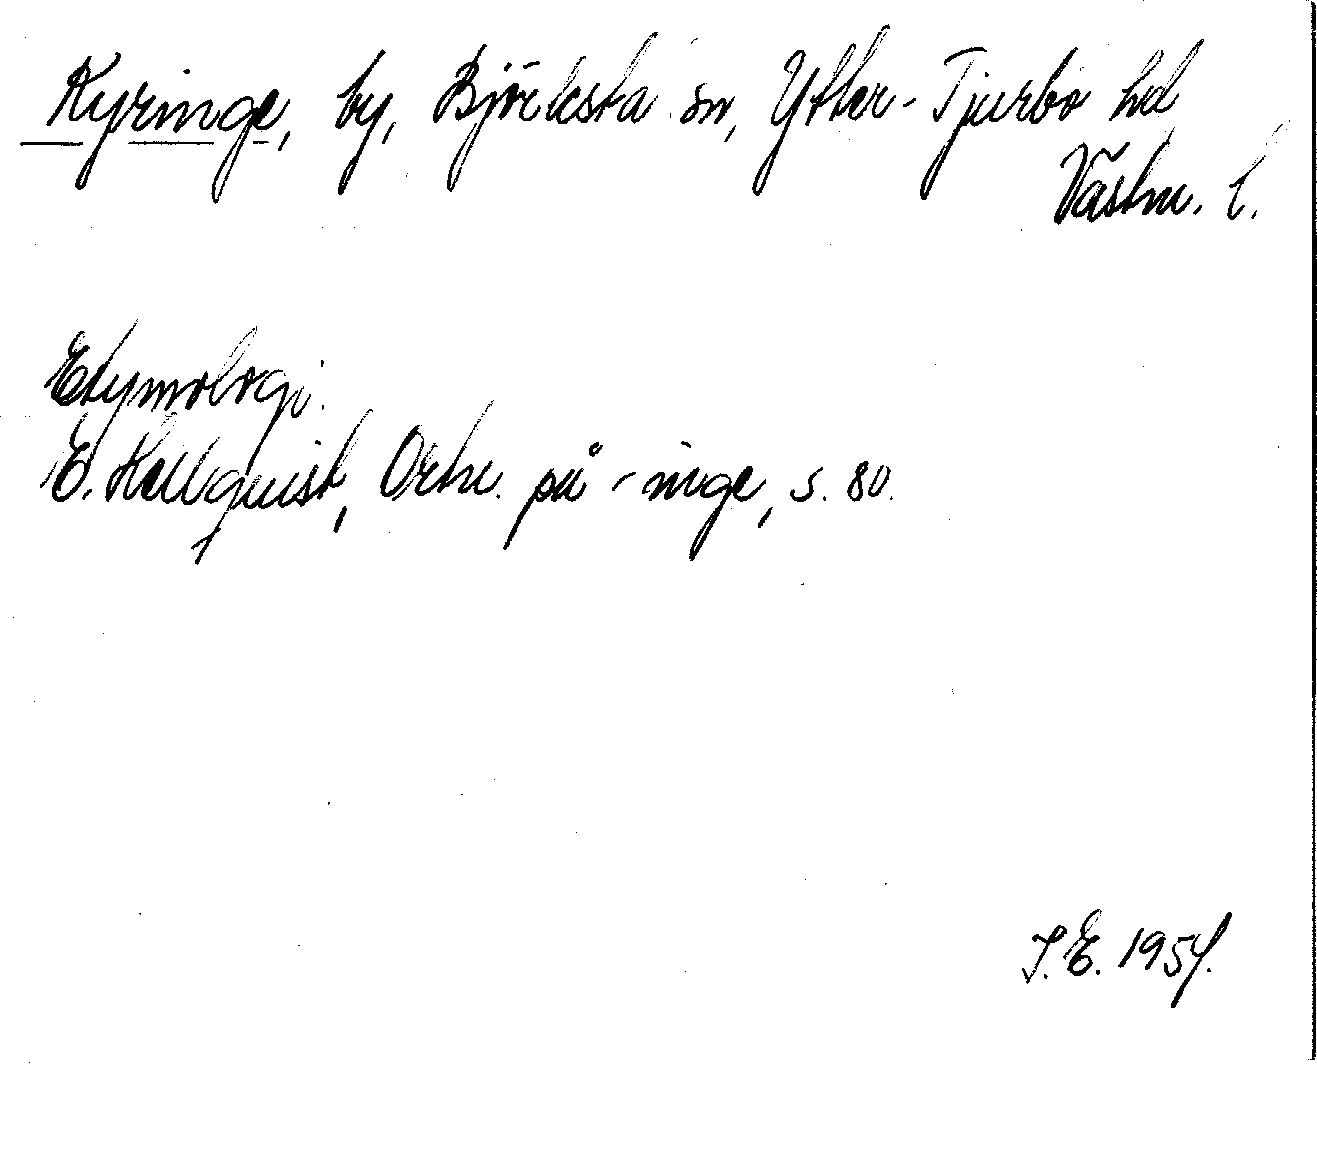 Kyringe, by, Björksta sn, Ytter-Tjurbo hd
Västm. l.
Etymologi.
E. Hellquist, Ortn. på -inge, s. 80.
I.E. 1954.